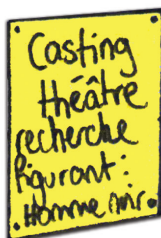 Casting
théâtre
recherche
figurant :
Homme noir.